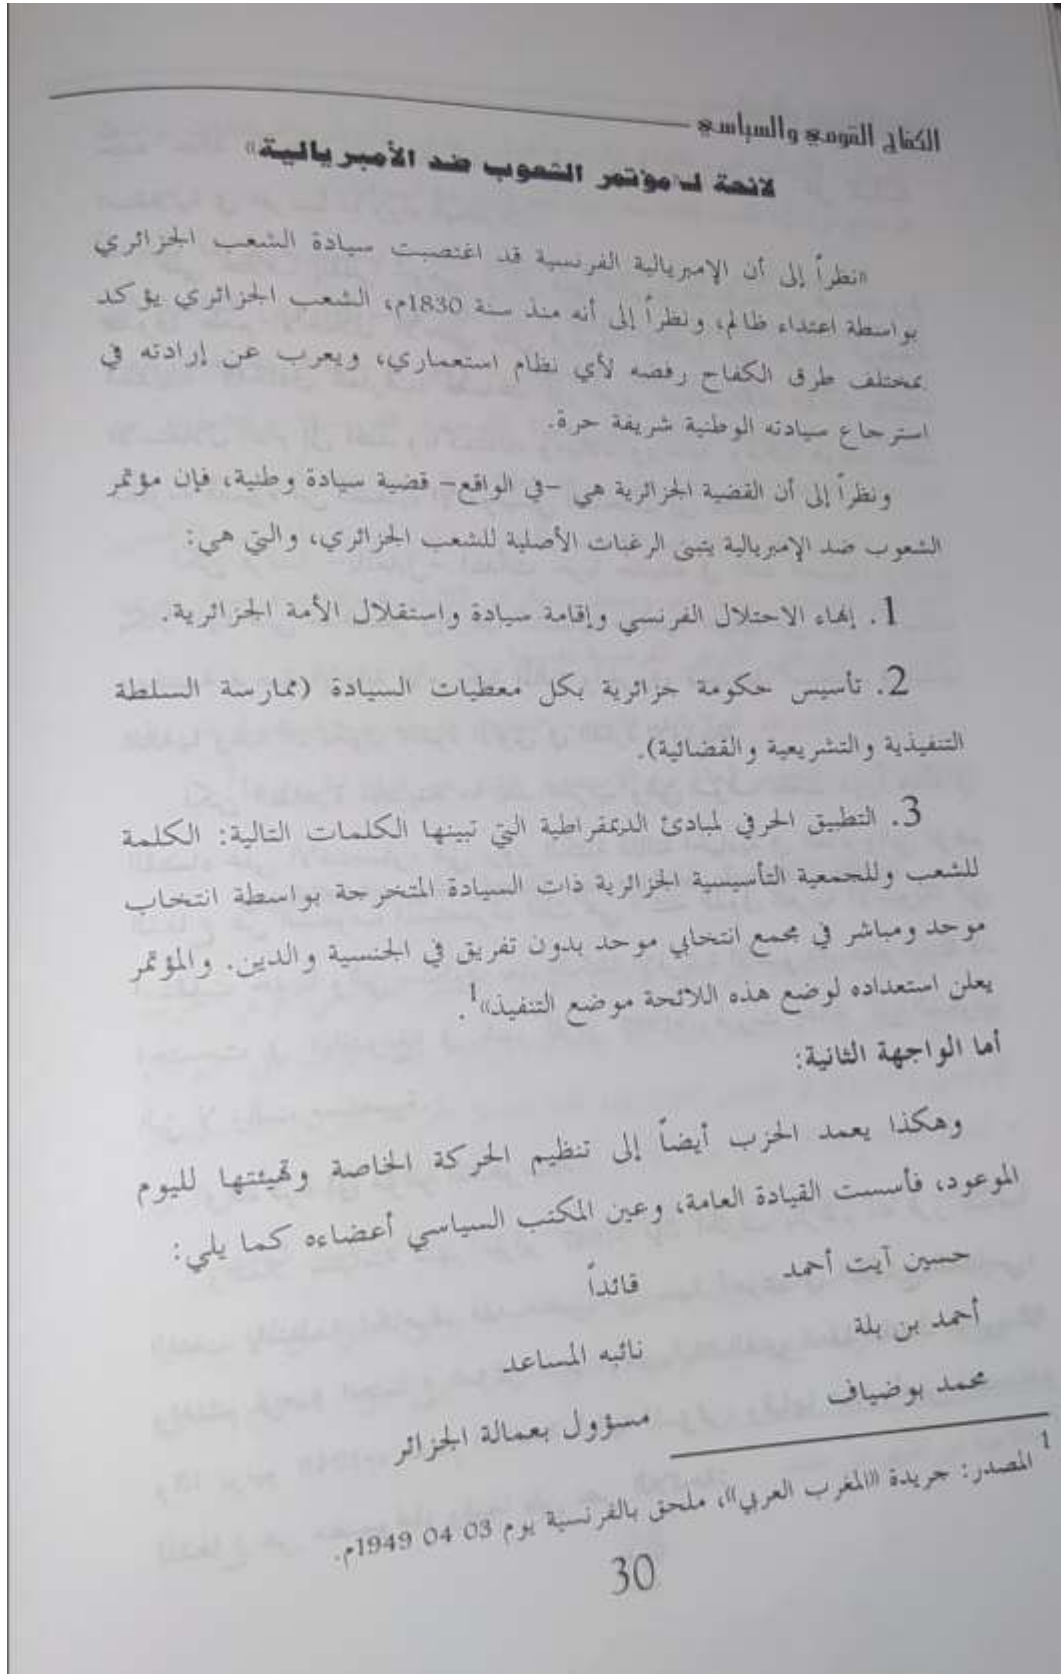 الكفاح القومي والسياسي
لائحة لـ«مؤتمر الشعوب ضد الأمبريالية»
«نظراً إلى أن الإمبريالية الفرنسية قد اغتصبت سيادة الشعب الجزائري
بواسطة اعتداء ظالم، ونظراً إلى أنه منذ سنة 1830م، الشعب الجزائري يؤكد
بمختلف طرق الكفاح رفضه لأي نظام استعماري، ويعرب عن إرادته في
استرجاع سيادته الوطنية شريفة حرة.
ونظراً إلى أن القضية الجزائرية هي -في الواقع- قضية سيادة وطنية، فإن مؤتمر
الشعوب ضد الإمبريالية يتبنى الرغبات الأصلية للشعب الجزائري، والتي هي:
1. إنهاء الاحتلال الفرنسي وإقامة سيادة واستقلال الأمة الجزائرية.
2. تأسيس حكومة جزائرية بكل معطيات السيادة (ممارسة السلطة
التنفيذية والتشريعية والقضائية).
3. التطبيق الحرفي لمبادئ الديمقراطية التي تبينها الكلمات التالية: الكلمة
للشعب وللجمعية التأسيسية الجزائرية ذات السيادة المتخرجة بواسطة انتخاب
موحد ومباشر في مجمع انتخابي موحد بدون تفريق في الجنسية والدين. والمؤتمر
يعلن استعداده لوضع هذه اللائحة موضع التنفيذ»1.
أما الواجهة الثانية:
وهكذا يعمد الحزب أيضاً إلى تنظيم الحركة الخاصة وتهيئتها لليوم
الموعود، فأسست القيادة العامة، وعين المكتب السياسي أعضاءه كما يلي:
حسين آيت أحمد قائداً
أحمد بن بلة نائبه المساعد
محمد بوضياف مسؤول بعمالة الجزائر
1 المصدر: جريدة «المغرب العربي»، ملحق بالفرنسية يوم 03 04 1949م.
30